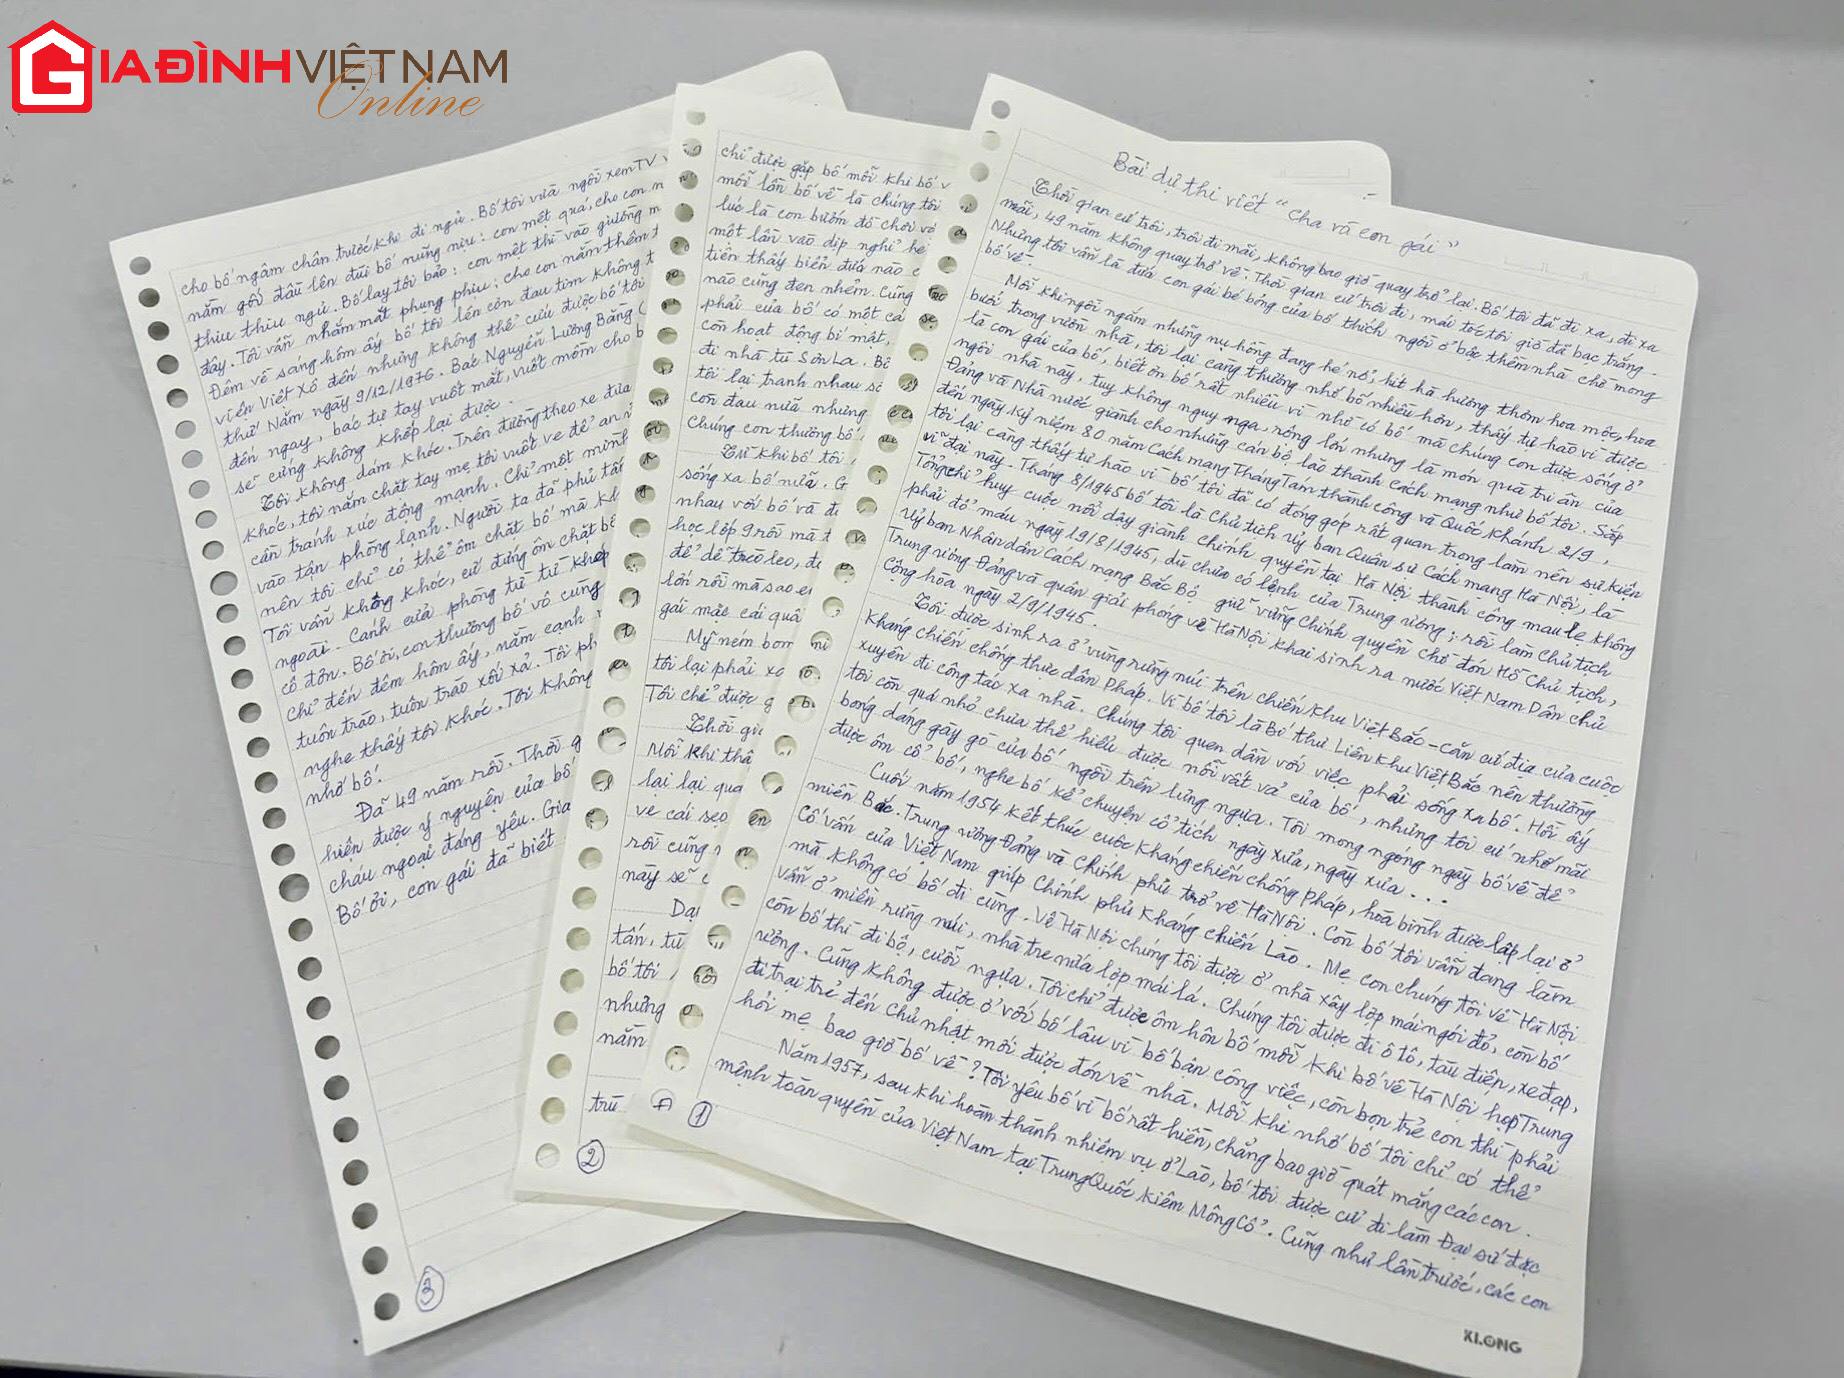 GIAĐÌNHVIỆTNAM
Online
Bài dự thi viết "Cha và con gái"
Thời gian cứ trôi, trôi đi mãi, không bao giờ quay trở lại. Bố tôi đã đi xa, đi xa
mãi, 49 năm không quay trở về. Thời gian cứ trôi đi, mái tóc tôi giờ đã bạc trắng.
Nhưng tôi vẫn là đứa con gái bé bỏng của bố thích ngồi ở bậc thềm nhà chờ mong
bố về.
Mỗi khi ngồi ngắm những nụ hồng đang hé nở, hít hà hương thơm hoa mộc, hoa
bưởi trong vườn nhà, tôi lại càng thương nhớ bố nhiều hơn, thấy tự hào vì được
là con gái của bố, biết ơn bố rất nhiều vì nhờ có bố mà chúng con được sống ở
ngôi nhà này, tuy không nguy nga, rộng lớn nhưng là món quà tri ân của
Đảng và Nhà nước giành cho những cán bộ lão thành cách mạng như bố tôi. Sắp
đến ngày kỷ niệm 80 năm Cách mạng Tháng Tám thành công và Quốc Khánh 2/9,
tôi lại càng thấy tự hào vì bố tôi đã có đóng góp rất quan trọng làm nên sự kiện
vĩ đại này. Tháng 8/1945 bố tôi là Chủ tịch Uỷ ban Quân sự Cách mạng Hà Nội, là
Tổng chỉ huy cuộc nổi dậy giành chính quyền tại Hà Nội thành công mau lẹ không
phải đổ máu ngày 19/8/1945, dù chưa có lệnh của Trung ương; rồi làm Chủ tịch
Uỷ ban Nhân dân Cách mạng Bắc Bộ giữ vững chính quyền chờ đón Hồ Chủ tịch,
Trung ương Đảng và quân giải phóng về Hà Nội khai sinh ra nước Việt Nam Dân chủ
Cộng hòa ngày 2/9/1945.
Tôi được sinh ra ở vùng rừng núi trên chiến khu Việt Bắc - căn cứ địa của cuộc
kháng chiến chống thực dân Pháp. Vì bố tôi là Bí thư Liên khu Việt Bắc nên thường
xuyên đi công tác xa nhà. Chúng tôi quen dần với việc phải sống xa bố. Hồi ấy
tôi còn quá nhỏ chưa thể hiểu được nỗi vất vả của bố, nhưng tôi cứ nhớ mãi
bóng dáng gầy gò của bố ngồi trên lưng ngựa. Tôi mong ngóng ngày bố về để
được ôm cổ bố, nghe bố kể chuyện cổ tích ngày xửa, ngày xưa...
Cuối năm 1954 kết thúc cuộc kháng chiến chống Pháp, hoà bình được lập lại ở
miền Bắc. Trung ương Đảng và Chính phủ trở về Hà Nội. Còn bố tôi vẫn đang làm
Cố vấn của Việt Nam giúp Chính phủ Kháng chiến Lào. Mẹ con chúng tôi về Hà Nội
mà không có bố đi cùng. Về Hà Nội chúng tôi được ở nhà xây lợp mái ngói đỏ, còn bố
vẫn ở miền rừng núi, nhà tre nứa lợp mái lá. Chúng tôi được đi ô tô, tàu điện, xe đạp,
còn bố thì đi bộ, cưỡi ngựa. Tôi chỉ được ôm hôn bố mỗi khi bố về Hà Nội họp Trung
ương. Cũng không được ở với bố lâu vì bố bận công việc, còn bọn trẻ con thì phải
đi trại trẻ đến Chủ nhật mới được đón về nhà. Mỗi khi nhớ bố tôi chỉ có thể
hỏi mẹ bao giờ bố về? Tôi yêu bố vì bố rất hiền, chẳng bao giờ quát mắng các con.
Năm 1957, sau khi hoàn thành nhiệm vụ ở Lào, bố tôi được cử đi làm Đại sứ đặc
mệnh toàn quyền của Việt Nam tại Trung Quốc kiêm Mông Cổ. Cũng như lần trước, các con
1
KLONG
chỉ được gặp bố mỗi khi bố v
mỗi lần bố về là chúng tôi
lúc là con bướm đỏ chơi vớ
một lần vào dịp nghỉ hè
tiên thấy biển đứa nào c
nào cũng đen nhẻm. Cũng
phải của bố có một cá
còn hoạt động bí mật,
đi nhà tù Sơn La. Bố
tôi lại tranh nhau sờ
còn đau nữa nhưng
chúng con thương bố
Từ khi bố tôi
sống xa bố nữa. G
nhau với bố và đ
học lớp 9 rồi mà t
để dễ trèo leo, đ
lớn rồi mà sao e
gái mặc cái quầ
Mỹ ném bom
tôi lại phải xa
Tôi chỉ được g
Thời gia
Mỗi khi thấ
lại lại qua
ve cái sẹo
rồi cũng
này sẽ c
Dạ
tấn, từ
bố tôi
nhưng
năm
trù
2
cho bố ngâm chân trước khi đi ngủ. Bố tôi vừa ngồi xem TV v
nằm gối đầu lên đùi bố nũng nịu: con mệt quá, cho con n
thiu thiu ngủ. Bố lay tôi bảo: con mệt thì vào giường n
đây. Tôi vẫn nhắm mắt phụng phịu: cho con nằm thêm t
Đêm về sáng hôm ấy bố tôi lên cơn đau tim không t
viện Việt Xô đến nhưng không thể cứu được bố tôi
thứ Năm ngày 9/12/1976. Bác Nguyễn Lương Bằng (
đến ngay, bác tự tay vuốt mắt, vuốt mồm cho b
sẽ cứng không khớp lại được.
Tôi không dám khóc. Trên đường theo xe đưa
khóc, tôi nắm chặt tay mẹ, tôi vuốt ve để an ủ
cần tránh xúc động mạnh. Chỉ một mình
vào tận phòng lạnh. Người ta đã phủ tấ
nên tôi chỉ có thể ôm chặt bố mà kh
Tôi vẫn không khóc, cứ đứng ôm chặt bố
ngoài. Cánh cửa phòng từ từ khép
cô đơn. Bố ơi, con thương bố vô cùng
Chỉ đến đêm hôm ấy, nằm cạnh
tuôn trào, tuôn trào xối xả. Tôi ph
nghe thấy tôi khóc. Tôi không
nhớ bố.
Đã 49 năm rồi. Thời g
hiện được ý nguyện của bố
cháu ngoại đáng yêu. Gia
Bố ơi, con gái đã biết
3